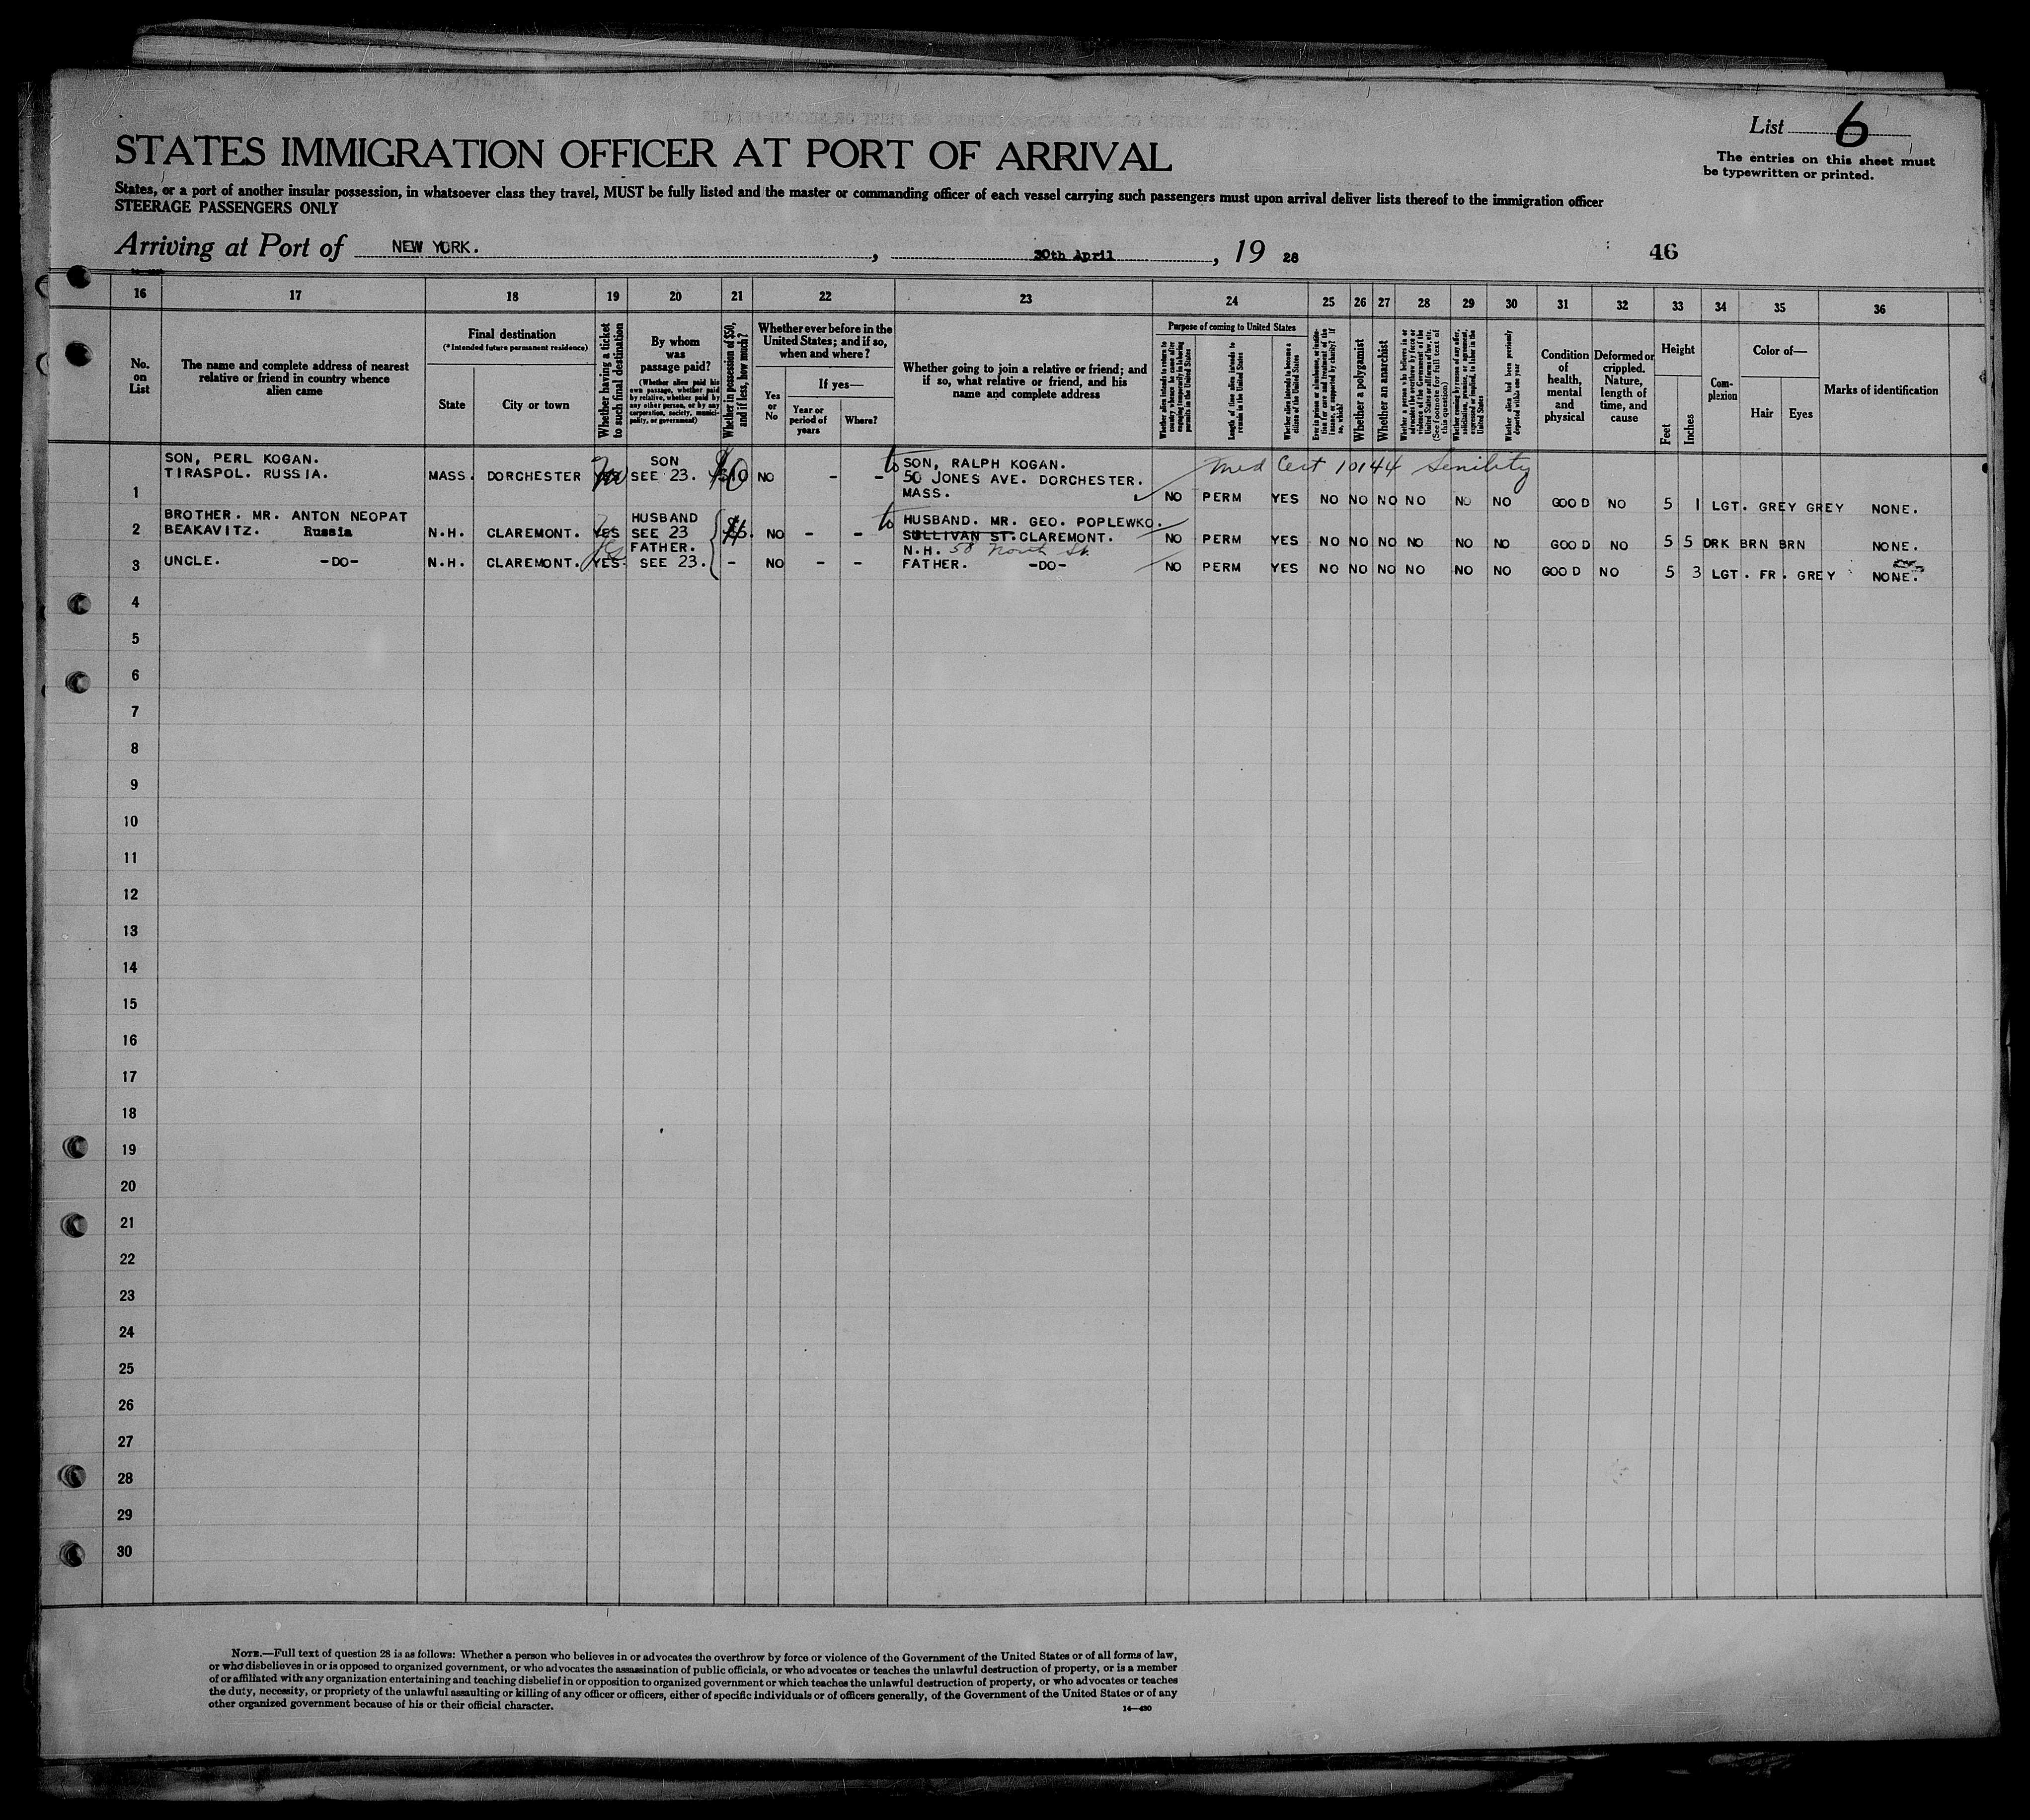 List 6
The entries on this sheet must
be typewritten or printed.
STATES IMMIGRATION OFFICER AT PORT OF ARRIVAL
States, or a port of another insular possession, in whatsoever class they travel, MUST be fully listed and the master or commanding officer of each vessel carrying such passengers must upon arrival deliver lists thereof to the immigration officer
STEERAGE PASSENGERS ONLY
Arriving at Port of NEW YORK. , 30th April , 19 28 46
16 17 18 19 20 21 22 23 24 25 26 27 28 29 30 31 32 33 34 35 36
No. on List
The name and complete address of nearest relative or friend in country whence alien came
Final destination
(*Intended future permanent residence)
State
City or town
Whether having a ticket to such final destination
By whom was passage paid?
(Whether alien paid his own passage, whether paid by relative, whether paid by any other person, or by any corporation, society, municipality, or government)
Whether in possession of $50, and if less, how much?
Whether ever before in the United States; and if so, when and where?
Yes or No
If yes—
Year or period of years
Where?
Whether going to join a relative or friend; and if so, what relative or friend, and his name and complete address
Purpose of coming to United States
Whether alien intends to return to country whence he came after engaging temporarily in laboring pursuits in the United States
Length of time alien intends to remain in the United States
Whether alien intends to become a citizen of the United States
Ever in prison or almshouse, or institution for care and treatment of the insane, or supported by charity? If so, which?
Whether a polygamist
Whether an anarchist
Whether coming by reason of any offer, solicitation, promise, or agreement, expressed or implied, to labor in the United States
Whether alien had been previously deported within one year
Condition of health, mental and physical
Deformed or crippled. Nature, length of time, and cause
Height
Feet
Inches
Complexion
Color of—
Hair
Eyes
Marks of identification
SON, PERL KOGAN. SON to SON, RALPH KOGAN. Med Cert 10144 Senility
TIRASPOL. RUSSIA. MASS. DORCHESTER SEE 23. NO - - 50 JONES AVE. DORCHESTER.
1 MASS. NO PERM YES NO NO NO NO NO NO GOOD NO 5 1 LGT. GREY GREY NONE.
BROTHER. MR. ANTON NEOPAT HUSBAND to HUSBAND. MR. GEO. POPLEWKO.
2 BEAKAVITZ. Russia N.H. CLAREMONT. YES SEE 23 NO - - SULLIVAN ST. CLAREMONT. NO PERM YES NO NO NO NO NO NO GOOD NO 5 5 DRK BRN BRN NONE.
FATHER. N.H. 58 North St.
3 UNCLE. -DO- N.H. CLAREMONT. YES. SEE 23. - NO - - FATHER. -DO- NO PERM YES NO NO NO NO NO NO GOOD NO 5 3 LGT. FR. GREY NONE.
4
5
6
7
8
9
10
11
12
13
14
15
16
17
18
19
20
21
22
23
24
25
26
27
28
29
30
NOTE.—Full text of question 28 is as follows: Whether a person who believes in or advocates the overthrow by force or violence of the Government of the United States or of all forms of law,
or who disbelieves in or is opposed to organized government, or who advocates the assassination of public officials, or who advocates or teaches the unlawful destruction of property, or is a member
of or affiliated with any organization entertaining and teaching disbelief in or opposition to organized government or which teaches the unlawful destruction of property, or who advocates or teaches
the duty, necessity, or propriety of the unlawful assaulting or killing of any officer or officers, either of specific individuals or of officers generally, of the Government of the United States or of any
other organized government because of his or their official character.
14—430